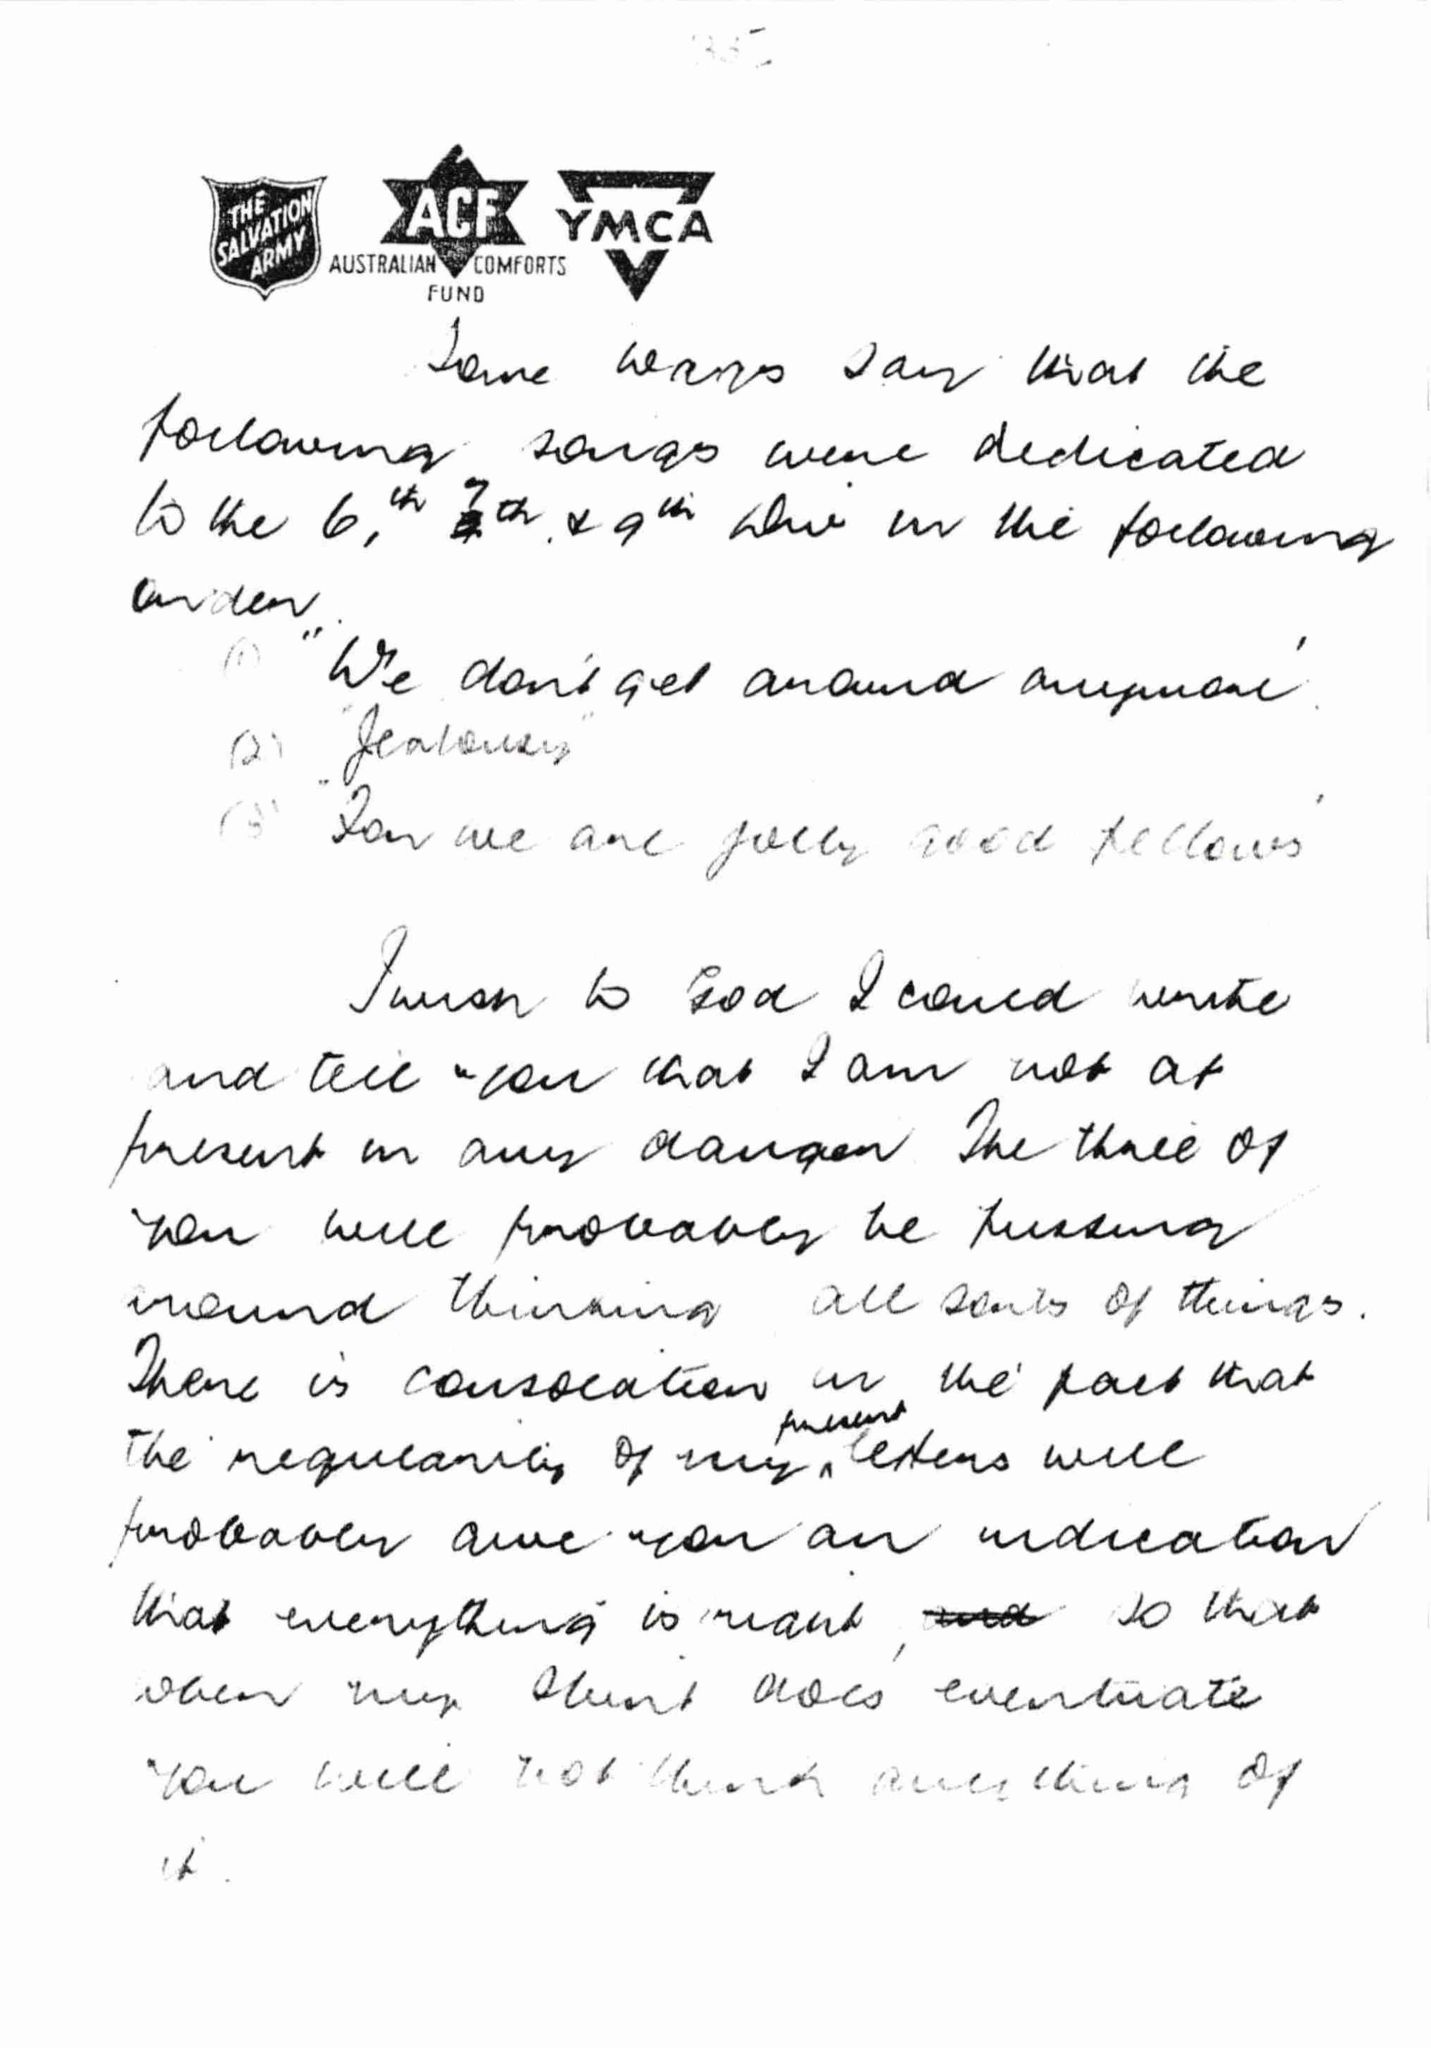 THE
SALVATION
ARMY
ACF
AUSTRALIAN COMFORTS
FUND
YMCA
Some wags say that the
following songs were dedicated
to the 6,th 7th & 9th Div in the following
order.
(1) "We don't get around anymore"
(2) "Jealousy"
(3) "For we are jolly good fellows"
I wish to God I could write
and tell you that I am not at
present in any danger The three of
you will probably be fussing
around thinking all sorts of things.
There is consolation in the fact that
the regularity of my present letters will
probably give you an indication
that everything is right, and so that
when my stunt does eventuate
you will not think anything of
it.